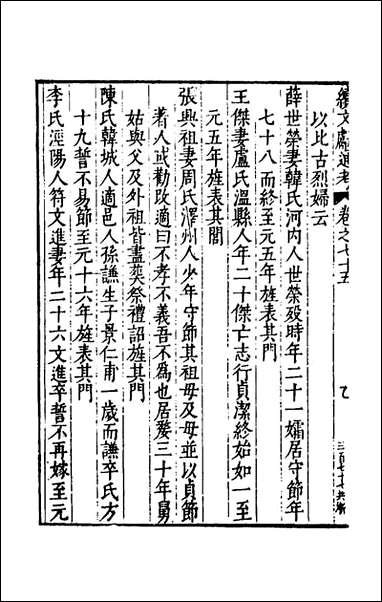 續文獻通考　卷之七十五
以比古烈婦云
薛世榮妻韓氏河内人世榮殁時年二十一孀居守節年
七十八而終至元五年旌表其門
王傑妻盧氏溫縣人年二十傑亡志行貞潔終始如一至
元五年旌表其閭
張興祖妻周氏澤州人少年守節其祖母及母並以貞節
著人或勸改適曰不孝不義吾不為也居嫠三十年舅
姑與父及外祖皆盡葬祭禮詔旌其門
陳氏韓城人適邑人孫謙生子景仁甫一歲而謙卒氏方
十九誓不易節至元十六年旌表其門
李氏涇陽人符文進妻年二十六文進卒誓不再嫁至元